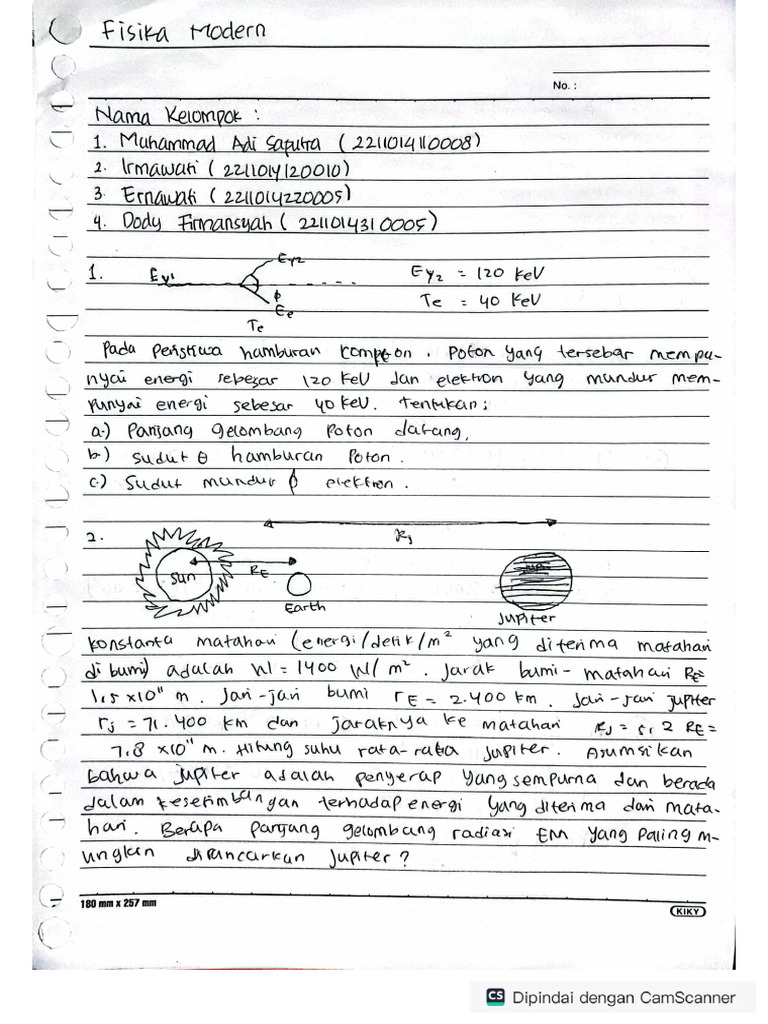 Fisika Modern
No. :
Nama Kelompok :
1. Muhammad Adi Saputra ( 2211014110008)
2. Irmawati ( 2211014120010)
3. Ernawati ( 2211014220005)
4. Dody Firmansyah ( 2211014310005)
1. Eγ1 Eγ2 Eγ2 = 120 keV
ϕ Ee Te = 40 keV
Te
Pada Peristiwa hamburan kompton. Poton yang tersebar mempu-
nyai energi sebesar 120 keV dan elektron yang mundur mem-
punyai energi sebesar 40 keV. Tentukan :
a.) Panjang gelombang Poton datang,
b.) Sudut θ hamburan Poton.
c.) Sudut mundur ϕ elektron.
2. Rj
Sun RE
Earth
Jupiter
Konstanta matahari (energi/detik/m² yang diterima matahari
di bumi) adalah W = 1400 W/m². Jarak bumi-matahari RE=
1,5 x10¹¹ m. Jari-jari bumi rE = 2.400 km. Jari-jari jupiter
rj = 71.400 km dan jaraknya ke matahari Rj = 5,2 RE =
7,8 x10¹¹ m. Hitung suhu rata-rata Jupiter. Asumsikan
bahwa jupiter adalah penyerap yang sempurna dan berada
dalam keseimbangan terhadap energi yang diterima dari mata-
hari. Berapa panjang gelombang radiasi EM yang paling m-
ungkin dipancarkan Jupiter?
180 mm x 257 mm
KIKY
CS Dipindai dengan CamScanner